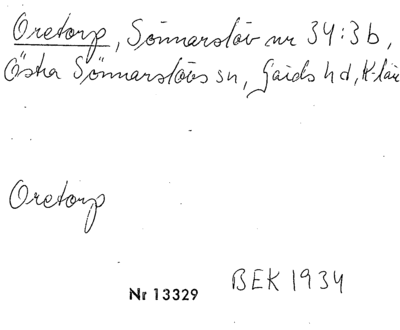 Oretorp, Sönnarslöv nr 34:3b,
Östra Sönnarslövs sn, Gärds hd, K-län
Oretorp
Nr 13329 BEK 1934